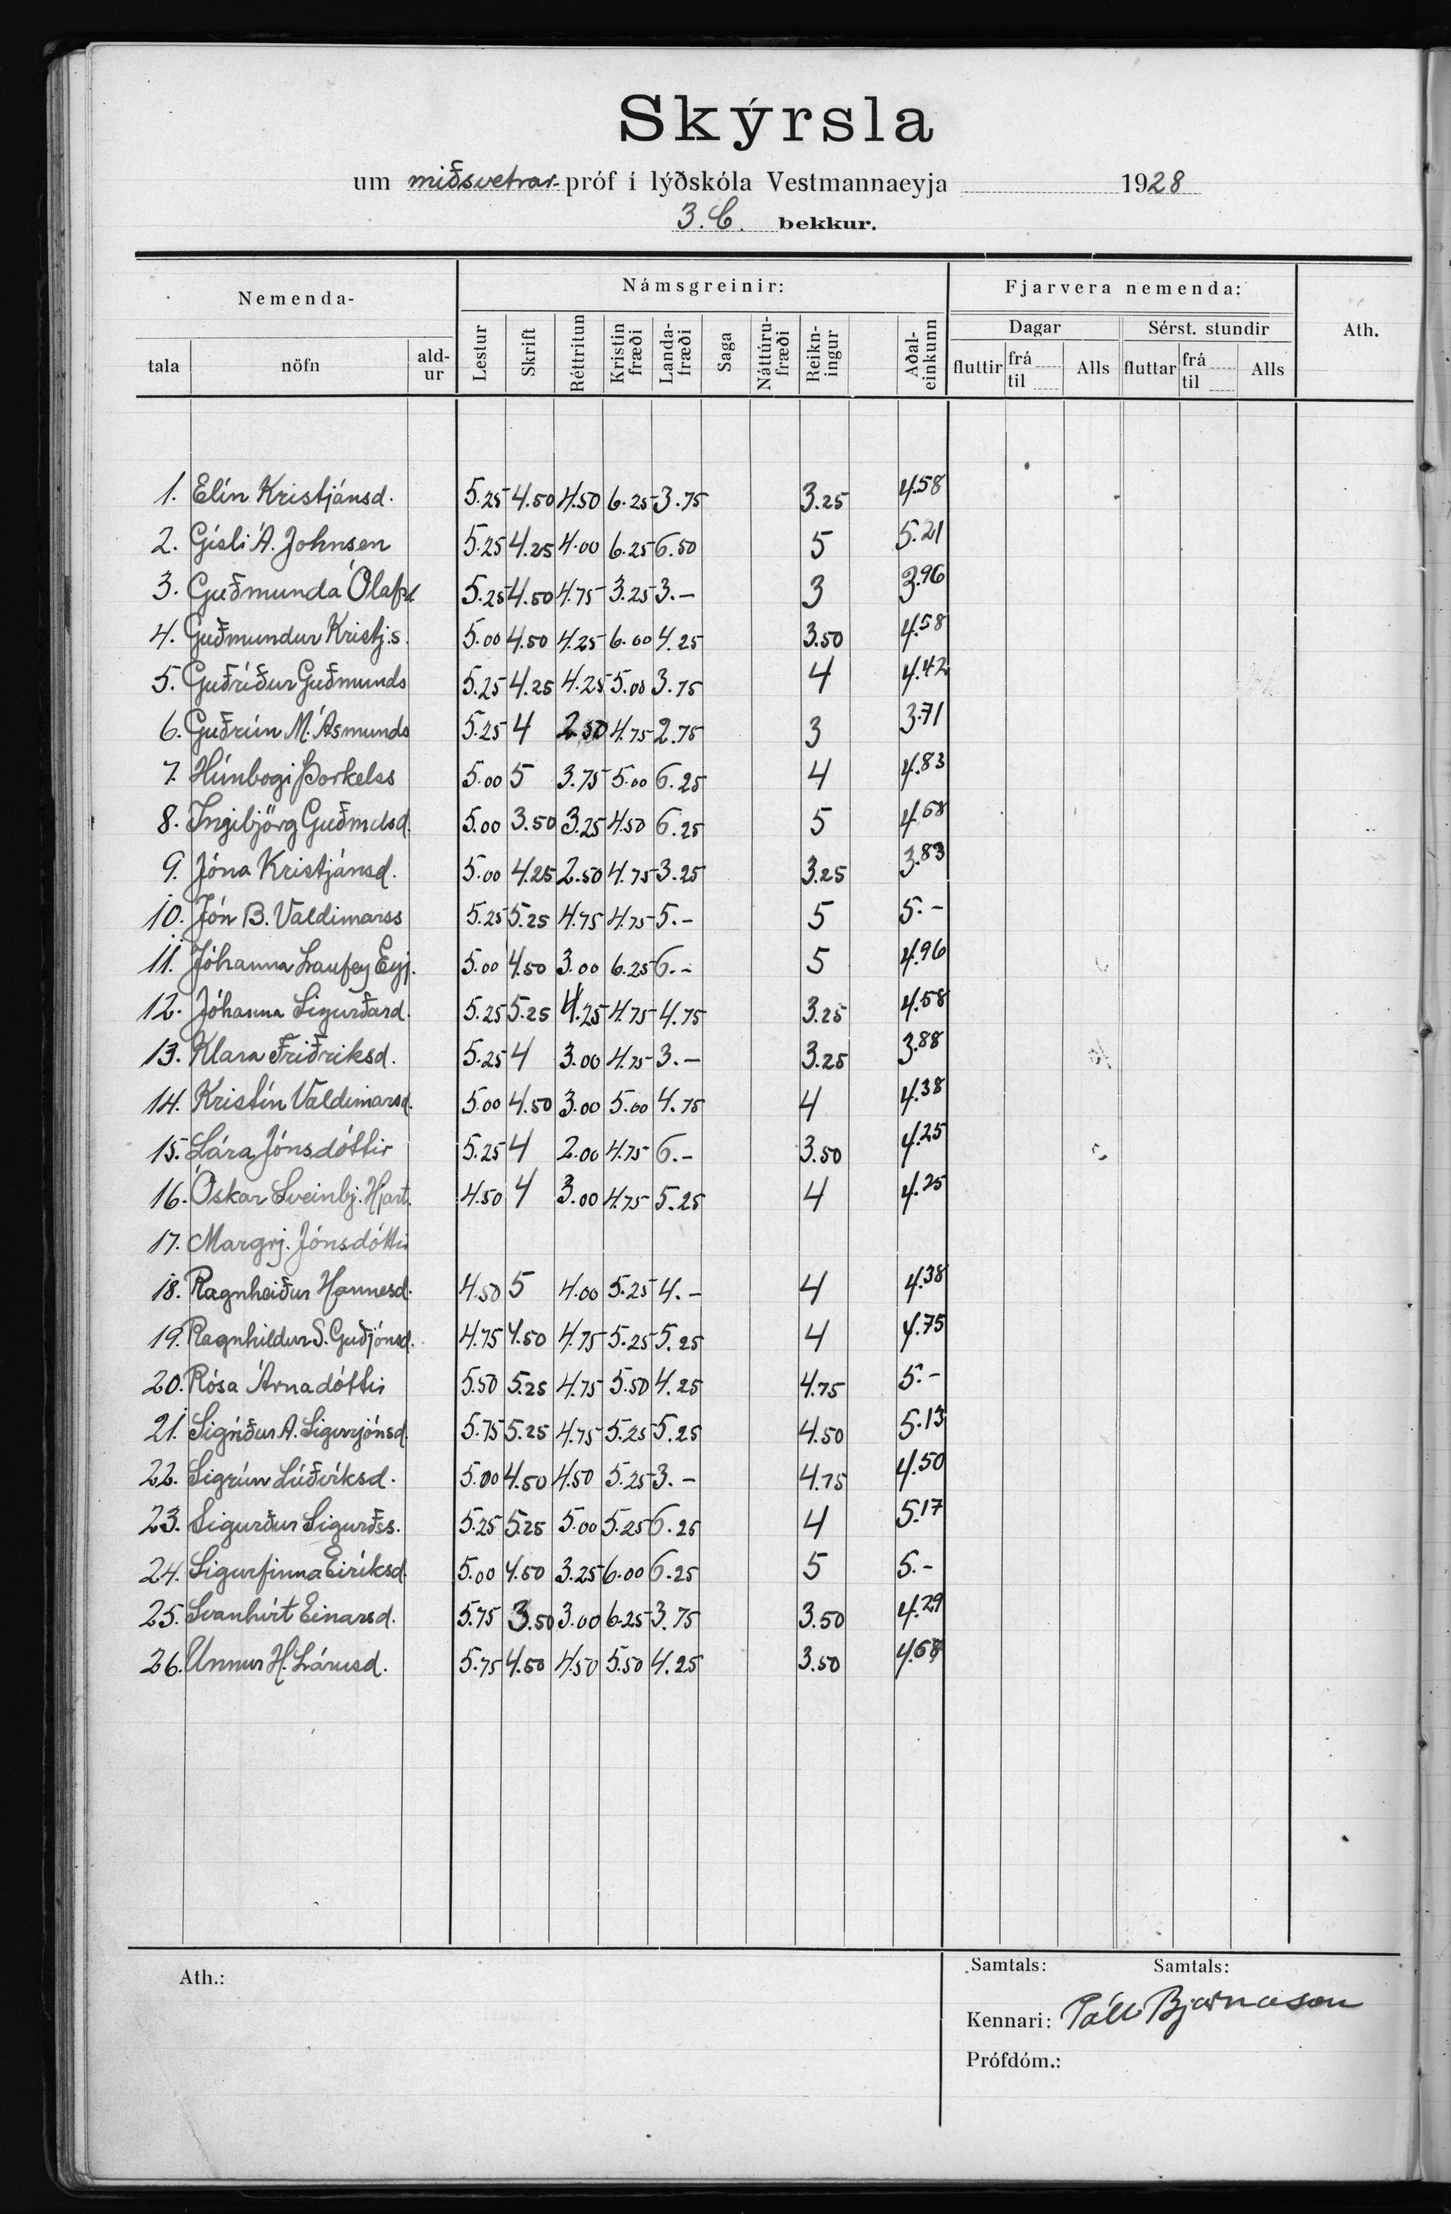 Skýrsla
um miðsvetrar-próf í lýðskóla Vestmannaeyja 1928
3. C. bekkur.
Nemenda- Námsgreinir: Fjarvera nemenda: Ath.
tala nöfn ald-ur Lestur Skrift Réttritun Kristin fræði Landa-fræði Saga Náttúru-fræði Reikn-ingur Aðal-einkunn Dagar Sérst. stundir
fluttir frá til Alls fluttar frá til Alls
1. Elín Kristjánsd. 5.25 4.50 4.50 6.25 3.75 3.25 4.58
2. Gísli Á. Johnsen 5.25 4.25 4.00 6.25 6.50 5 5.21
3. Guðmunda Ólafsd 5.25 4.50 4.75 3.25 3.- 3 3.96
4. Guðmundur Kristj.s. 5.00 4.50 4.25 6.00 4.25 3.50 4.58
5. Guðríður Guðmunds 5.25 4.25 4.25 5.00 3.75 4 4.42
6. Guðrún M. Ásmunds 5.25 4 2.50 4.75 2.75 3 3.71
7. Húnbogi Þorkelss 5.00 5 3.75 5.00 6.25 4 4.83
8. Ingibjörg Guðmdsd. 5.00 3.50 3.25 4.50 6.25 5 4.58
9. Jóna Kristjánsd. 5.00 4.25 2.50 4.75 3.25 3.25 3.83
10. Jón B. Valdimarss 5.25 5.25 4.75 4.75 5.- 5 5.-
11. Jóhanna Laufey Eyj. 5.00 4.50 3.00 6.25 6.- 5 4.96
12. Jóhanna Sigurðard. 5.25 5.25 4.25 4.75 4.75 3.25 4.58
13. Klara Friðriksd. 5.25 4 3.00 4.75 3.- 3.25 3.88
14. Kristín Valdimarsd. 5.00 4.50 3.00 5.00 4.75 4 4.38
15. Lára Jónsdóttir 5.25 4 2.00 4.75 6.- 3.50 4.25
16. Óskar Sveinbj. Hjart. 4.50 4 3.00 4.75 5.25 4 4.25
17. Margrj. Jónsdóttir
18. Ragnheiður Hannesd. 4.50 5 4.00 5.25 4.- 4 4.38
19. Ragnhildur S. Guðjónsd. 4.75 4.50 4.75 5.25 5.25 4 4.75
20. Rósa Árnadóttir 5.50 5.25 4.75 5.50 4.25 4.75 5.-
21. Sigríður A. Sigurjónsd. 5.75 5.25 4.75 5.25 5.25 4.50 5.13
22. Sigrún Lúðvíksd. 5.00 4.50 4.50 5.25 3.- 4.75 4.50
23. Sigurður Sigurðss. 5.25 5.25 5.00 5.25 6.25 4 5.17
24. Sigurfinna Eiríksd. 5.00 4.50 3.25 6.00 6.25 5 5.-
25. Svanhvít Einarsd. 5.75 3.50 3.00 6.25 3.75 3.50 4.29
26. Unnur H. Lárusd. 5.75 4.50 4.50 5.50 4.25 3.50 4.68
Ath.: Samtals: Samtals:
Kennari: Páll Bjarnason
Prófdóm.: